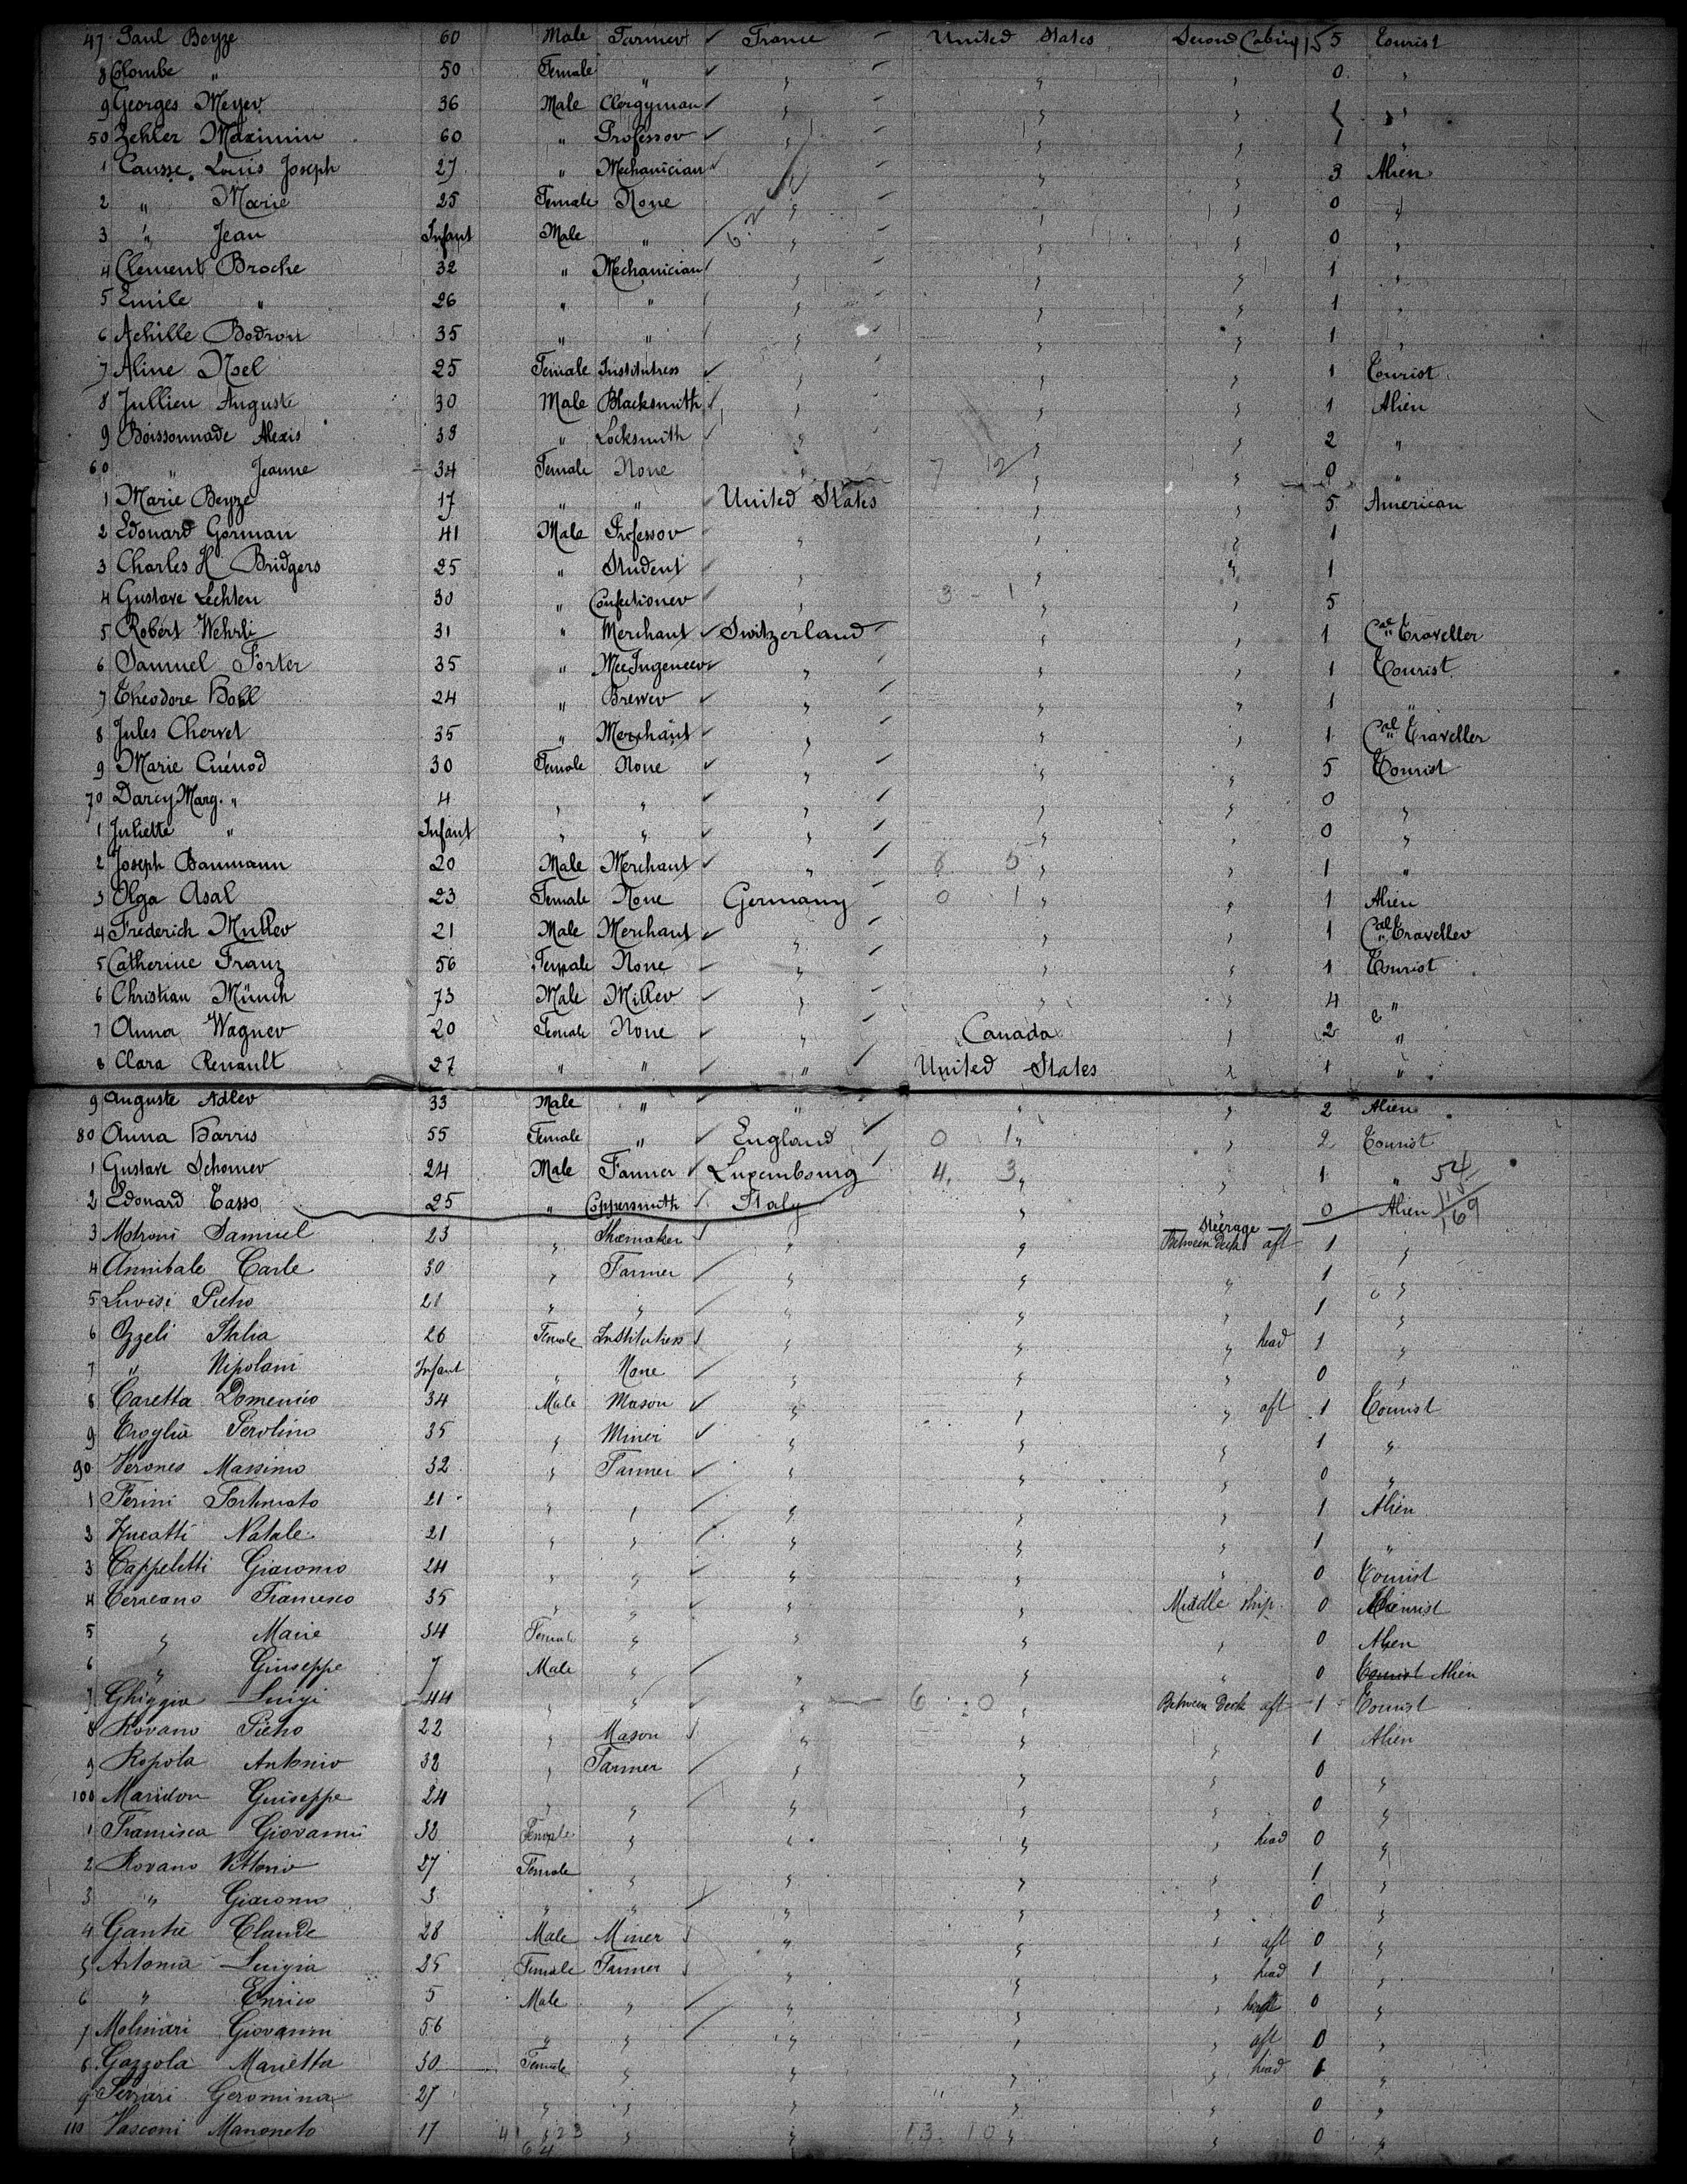 47 Paul Beyze 60 Male Farmer ✓ France United States Second Cabin 5 Tourist
8 Colombe " 50 Female " ✓ " " " 0 "
9 Georges Meyer 36 Male Clergyman ✓ " " " "
50 Zehler Maximin 60 " Professor ✓ " " " 1 "
1 Causse Louis Joseph 27 " Mechanician ✓ " " " 3 Alien
2 " Marie 25 Female None " " " 0 "
3 " Jean Infant Male " " " " 0 "
4 Clement Broche 32 " Mechanician " " " 1 "
5 Emile " 26 " " " " " 1 "
6 Achille Bodron 35 " " " " " 1 "
7 Aline Noel 25 Female Institutress ✓ " " " 1 Tourist
8 Jullien Auguste 30 Male Blacksmith " " " 1 Alien
9 Boissonnade Alexis 38 " Locksmith ✓ " " " 2 "
60 " Jeanne 34 Female None " 7 12 " " 0 "
1 Marie Beyze 17 " " ✓ United States " " 5 American
2 Edouard Gorman 41 Male Professor ✓ " " " 1
3 Charles H Bridgers 25 " Student ✓ " " " 1
4 Gustave Lechten 30 " Confectioner ✓ " 3 - 1 " " 5
5 Robert Wehrli 31 " Merchant ✓ Switzerland " " 1 Cal Traveller
6 Samuel Forter 35 " Mec Ingeneer ✓ " " " 1 Tourist
7 Theodore Holl 24 " Brewer ✓ " " " 1 "
8 Jules Chervet 35 " Merchant ✓ " " " 1 Cal Traveller
9 Marie Cuénod 30 Female None ✓ " " " 5 Tourist
70 Darcy Marg. " 4 " " ✓ " " " 0 "
1 Juliette " Infant " " ✓ " " " 0 "
2 Joseph Baumann 20 Male Merchant ✓ " 8 5 " " 1 "
3 Olga Asal 23 Female None Germany 0 1 " " 1 Alien
4 Frederich Muller 21 Male Merchant ✓ " " " 1 Cal Traveller
5 Catherine Franz 56 Female None ✓ " " " 1 Tourist
6 Christian Münch 73 Male Miller ✓ " " " 4 "
7 Anna Wagner 20 Female None ✓ " Canada " 2 "
8 Clara Renault 27 " " ✓ " United States " 1 "
9 Auguste Adler 33 Male " ✓ " " " 2 Alien
80 Anna Harris 55 Female " ✓ England 0 1 " " 2 Tourist
1 Gustave Schomer 24 Male Farmer ✓ Luxembourg 4 3 " " 1 " 54
2 Edouard Tasso 25 " Coppersmith ✓ Italy " " 0 Alien 115 169
3 Motroni Samuel 23 " Shoemaker " " Steerage Between Deck aft 1 "
4 Annibale Carle 30 " Farmer ✓ " " " 1 "
5 Luvisi Pietro 21 " " ✓ " " " 1 "
6 Ozzeli Italia 26 Female Institutress " " " head 1 "
7 " Nipolani Infant " None ✓ " " " 0 "
8 Caretta Domenico 34 Male Mason ✓ " " " aft 1 Tourist
9 Troglia Perolino 35 " Miner ✓ " " " 1 "
90 Verones Massimo 32 " Farmer ✓ " " " 0 "
1 Ferini Fortunato 21 " " ✓ " " " 1 Alien
2 Zucatti Natale 21 " " ✓ " " " 1 "
3 Cappeletti Giacomo 24 " " ✓ " " " 0 Tourist
4 Cerreano Francesco 35 " " ✓ " " Middle ship 0
5 " Marie 34 Female " " " " 0 Alien
6 " Giuseppe 7 Male " ✓ " " " 0 Tourist Alien
7 Ghiggia Luigi 44 " " ✓ " 6 : 0 " Between Deck aft 1 Tourist
8 Rovano Pietro 22 " Mason " " " 1 Alien
9 Ropola Antonio 32 " Farmer ✓ " " " 0 "
100 Maridon Guiseppe 24 " " ✓ " " " 0 "
1 Francisca Giovanni 32 Female " " " " head 0 "
2 Rovano Vittorio 27 Female " " " " 1 "
3 " Giacomo 3 " " ✓ " " " 0 "
4 Gantie Claude 28 Male Miner " " " aft 0 "
5 Antonia Luigia 25 Female Farmer " " " head 1 "
6 " Enrico 5 Male " ✓ " " " 0 "
7 Molinari Giovanni 56 " " ✓ " " " aft 0 "
8 Gazzola Marietta 30 Female " " " " head 1 "
9 Ferrari Geromina 27 " " " " " 0 "
110 Vasconi Manoneto 17 41 23 " " 13 10 " " 0 "
64